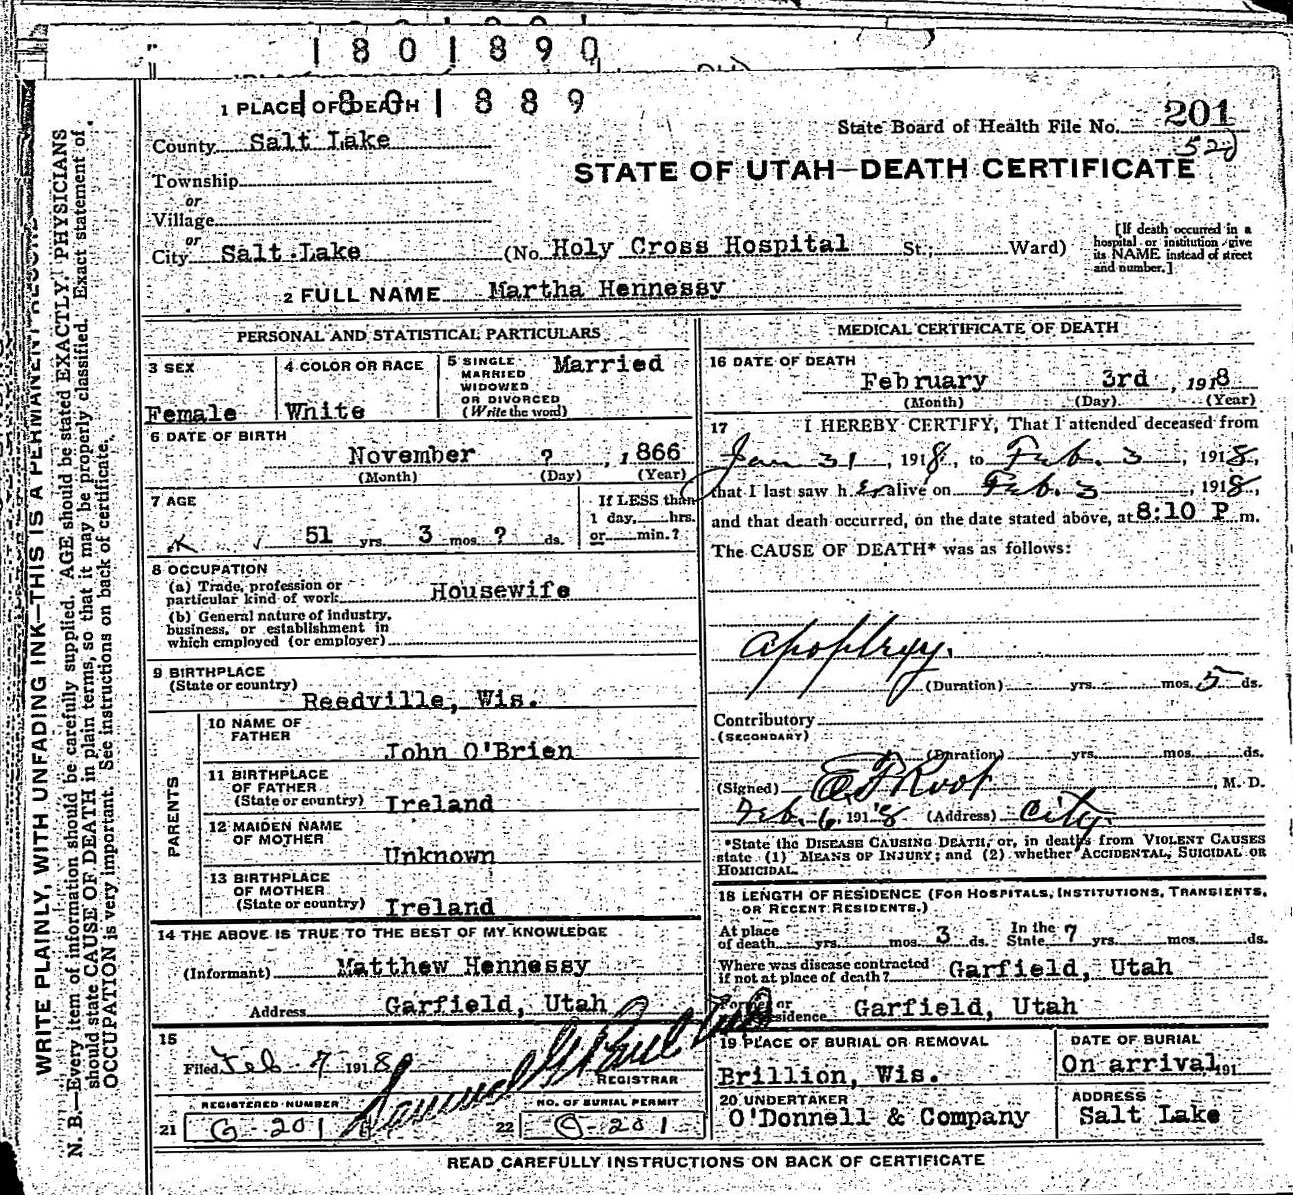 1801890
1801889
1 PLACE OF DEATH
State Board of Health File No. 201
522
County Salt Lake
STATE OF UTAH—DEATH CERTIFICATE
Township
or
Village
or
City Salt Lake (No. Holy Cross Hospital St.; Ward)
[If death occurred in a hospital or institution give its NAME instead of street and number.]
2 FULL NAME Martha Hennessy
PERSONAL AND STATISTICAL PARTICULARS
3 SEX
Female
4 COLOR OR RACE
White
5 SINGLE
MARRIED
WIDOWED
OR DIVORCED
(Write the word)
Married
6 DATE OF BIRTH
November ? , 1866
(Month) (Day) (Year)
7 AGE
51 yrs. 3 mos. ? ds.
If LESS than
1 day, hrs.
or min.?
8 OCCUPATION
(a) Trade, profession or
particular kind of work Housewife
(b) General nature of industry,
business, or establishment in
which employed (or employer)
9 BIRTHPLACE
(State or country)
Reedville, Wis.
PARENTS
10 NAME OF
FATHER
John O'Brien
11 BIRTHPLACE
OF FATHER
(State or country) Ireland
12 MAIDEN NAME
OF MOTHER
Unknown
13 BIRTHPLACE
OF MOTHER
(State or country) Ireland
14 THE ABOVE IS TRUE TO THE BEST OF MY KNOWLEDGE
(Informant) Matthew Hennessy
Address Garfield, Utah
15
Filed Feb 7 1918
Samuel G. Paul
REGISTRAR
REGISTERED NUMBER
21 G-201
NO. OF BURIAL PERMIT
22 G-201
MEDICAL CERTIFICATE OF DEATH
16 DATE OF DEATH
February 3rd , 1918
(Month) (Day) (Year)
17 I HEREBY CERTIFY, That I attended deceased from
Jan 31, 1918, to Feb. 3, 1918,
that I last saw her alive on Feb. 3, 1918,
and that death occurred, on the date stated above, at 8:10 P m.
The CAUSE OF DEATH* was as follows:
apoplexy.
(Duration) yrs. mos. 5 ds.
Contributory
(SECONDARY)
(Duration) yrs. mos. ds.
(Signed) E F Root, M. D.
Feb. 6, 1918 (Address) City.
*State the DISEASE CAUSING DEATH, or, in deaths from VIOLENT CAUSES
state (1) MEANS OF INJURY; and (2) whether ACCIDENTAL, SUICIDAL OR
HOMICIDAL.
18 LENGTH OF RESIDENCE (FOR HOSPITALS, INSTITUTIONS, TRANSIENTS,
OR RECENT RESIDENTS.)
At place
of death yrs. mos. 3 ds. In the State 7 yrs. mos. ds.
Where was disease contracted
if not at place of death? Garfield, Utah
Former or
residence Garfield, Utah
19 PLACE OF BURIAL OR REMOVAL
Brillion, Wis.
DATE OF BURIAL
On arrival, 191
20 UNDERTAKER
O'Donnell & Company
ADDRESS
Salt Lake
READ CAREFULLY INSTRUCTIONS ON BACK OF CERTIFICATE
WRITE PLAINLY, WITH UNFADING INK—THIS IS A PERMANENT RECORD
N. B.—Every item of information should be carefully supplied. AGE should be stated EXACTLY. PHYSICIANS
should state CAUSE OF DEATH in plain terms, so that it may be properly classified. Exact statement of
OCCUPATION is very important. See instructions on back of certificate.